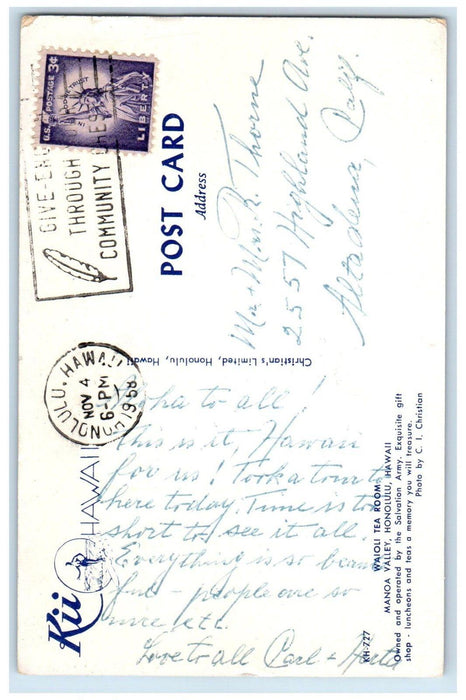 U.S. POSTAGE 3¢
IN GOD WE TRUST
LIBERTY
THROUGH
COMMUNITY
HONOLULU, HAWAII
NOV 4
6-PM
1958
POST CARD
Address
Mr + Mrs. R. Thorne
2557 Highland Ave.
Altadena, Calif.
Christian's Limited, Honolulu, Hawaii
Kii
HAWAII
Aloha to all!
This is it, Hawaii
for us! Took a tour to
here today. Time is too
short to see it all.
Everything is so beauti
ful - people are so
nice etc.
Love to all Carl + Herta
KH-227
WAIOLI TEA ROOM
MANOA VALLEY, HONOLULU, HAWAII
Owned and operated by the Salvation Army. Exquisite gift
shop - luncheons and teas a memory you will treasure.
Photo by C. I. Christian